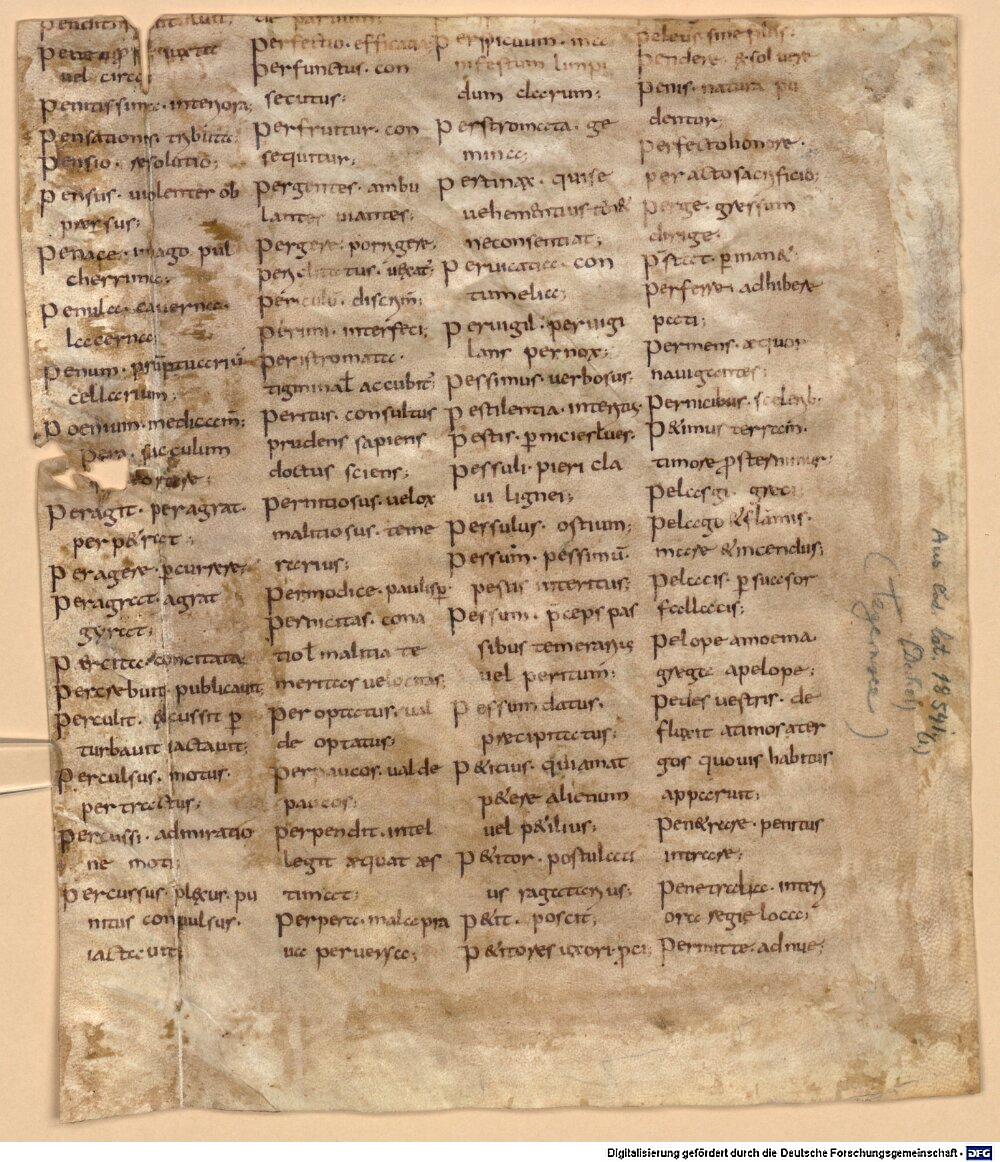 vel circa
Penitissima. interiora;
Pensationis. tributa;
Pensio. resolutio;
Pensus. violenter ob
praessus;
Penace. imago pul
cherrima;
Penula. caverna.
lacerna;
Penum. prumptuarium
cellarium;
Poenium. mediacem;
Pera. sacculum
Peragit. peragrat.
per&
Peragere. percurrere;
Peragrat. agrat
gyrat;
Percita. concitata
Percrebuit. publicavit;
Perculit. percussit per
turbavit iactavit;
Perculsus. motus.
pertractus;
Percussi. admiratio
ne moti;
Percussus. plexus. pu
nitus conpulsus.
iactavit;
Perfectio. efficacia
Perfunctus. con
secutus;
Perfruitur. con
sequitur;
Pergentes. ambu
lantes viantes;
Pergere. porrigere;
Periclitatus. vexat;
Periculum. discrim;
Perimi. interfeci;
Peristromata.
tiginnal accubit;
Peritus. consultus
prudens sapiens
doctus sciens;
Pernitiosus. velox
malitiosus. teme
rarius;
Permodice. paulisper
Pernicitas. cona
tiol malitia te
meritas velocitas;
Per optatus. val
de optatus;
Perpaucos. valde
paucos;
Perpendit. intel
legit aequat aes
timat;
Perpera. mala pra
va perversa;
Perspicuum.
infestum limpi
dum clarum;
Perstromata. ge
mina;
Pertinax. qui se
vehementius
ne consentiat;
Pervicatia. con
tumelia;
Pervigil. pervigi
lans pernox;
Pessimus. verbosus;
Pestilentia. interitus;
Pestis. pernicies
Pessuli. pieri cla
vi lignei;
Persulus. ostium;
Pessum. pessimum
pestis interitus;
Pessum. praeceps pas
sibus temerarius
vel peritum;
Pessum datus.
praecipitatus;
P&icius. qui amat
p&ere alienum
vel p&ilius;
P&itor. postulati
us rogatarius;
P&it. poscit;
P&itores uxori.
Peleus sine pilis.
Pendere exsolvere
Penis. natura pu
dentur;
Perfecto honore.
peracto sacrificio;
Perge. gressum
dirige.
P stat. perman&;
Perferre. adhibere
pati;
Permens. aequor
navigantes;
Pernicibus. sceleribus
P&imus terram.
timore prosternimus;
Pelasgi. greci
Pelago & flamis.
mare & incendiis;
Pelacis. per succor
fallacis;
Pelope amoema.
gregia apelope;
Pedes vestris. de
fluxit
gos quovis habitus
apparuit;
Pen&rare. penitus
intrare;
Penetralia. interi
ora regie loca;
Permitte. adnue;
Aus cod. lat. 18541
(Tegernsee)
Digitalisierung gefördert durch die Deutsche Forschungsgemeinschaft - DFG